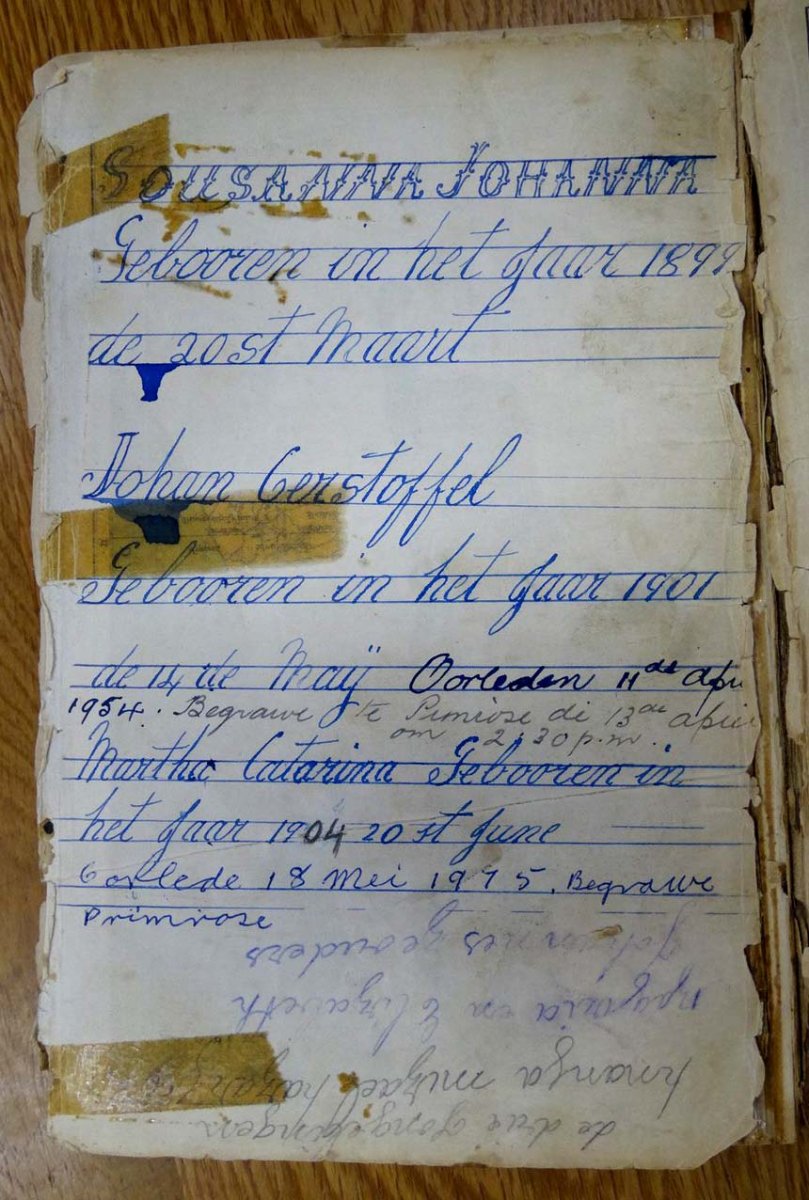 SOUSANNA JOHANNA
Gebooren in het Jaar 1899
de 20st Maart
Johan Cerstoffel
Gebooren in het Jaar 1901
de 14 de Maÿ Oorleden 11de Apri
1954. Begrawe te Primrose di 13de April
om 2.30 p.m.
Martha Catarina Gebooren in
het Jaar 1904 20st June
Oorlede 18 Mei 1975. Begrawe
Primrose
de drie jongelingen
misael
en Elizabeth
Johannes geouders